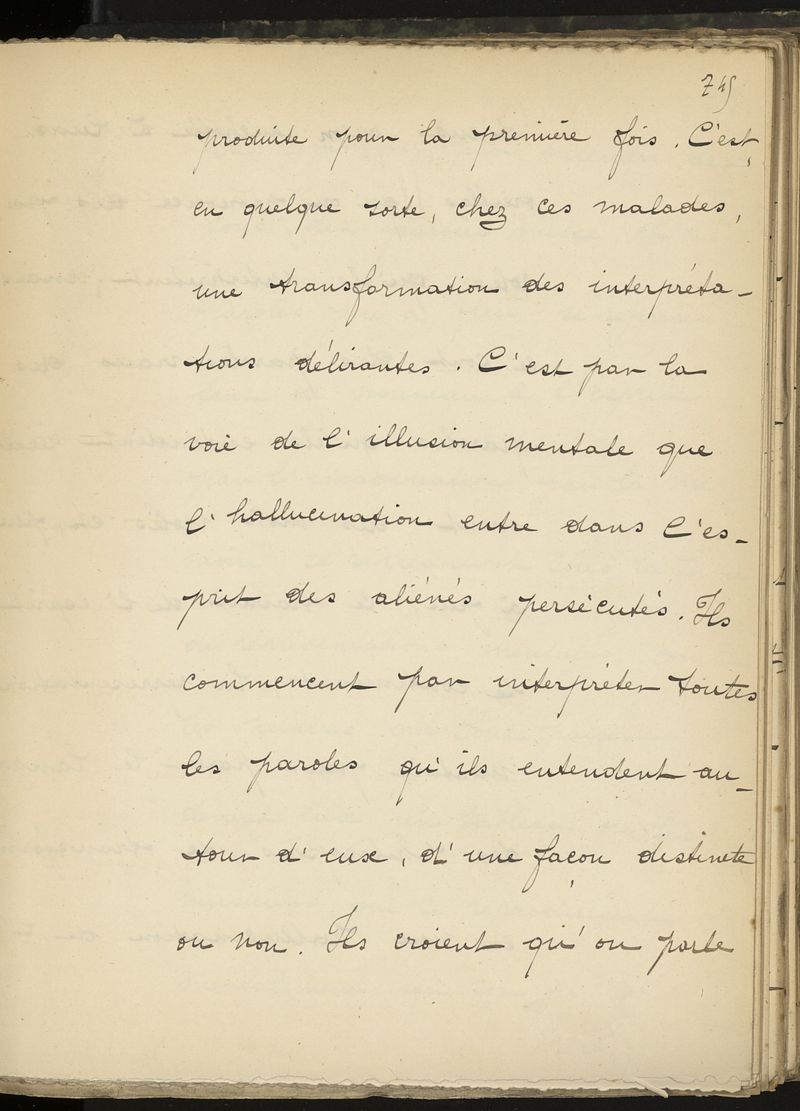 745
produite pour la première fois. C'est,
en quelque sorte, chez ces malades,
une transformation des interpréta-
tions délirantes. C'est par la
voie de l'illusion mentale que
l'hallucination entre dans l'es-
prit des aliénés persécutés. Ils
commencent par interpréter toutes
les paroles qu'ils entendent au-
tour d'eux, d'une façon distincte
ou non. Ils croient qu'on parle